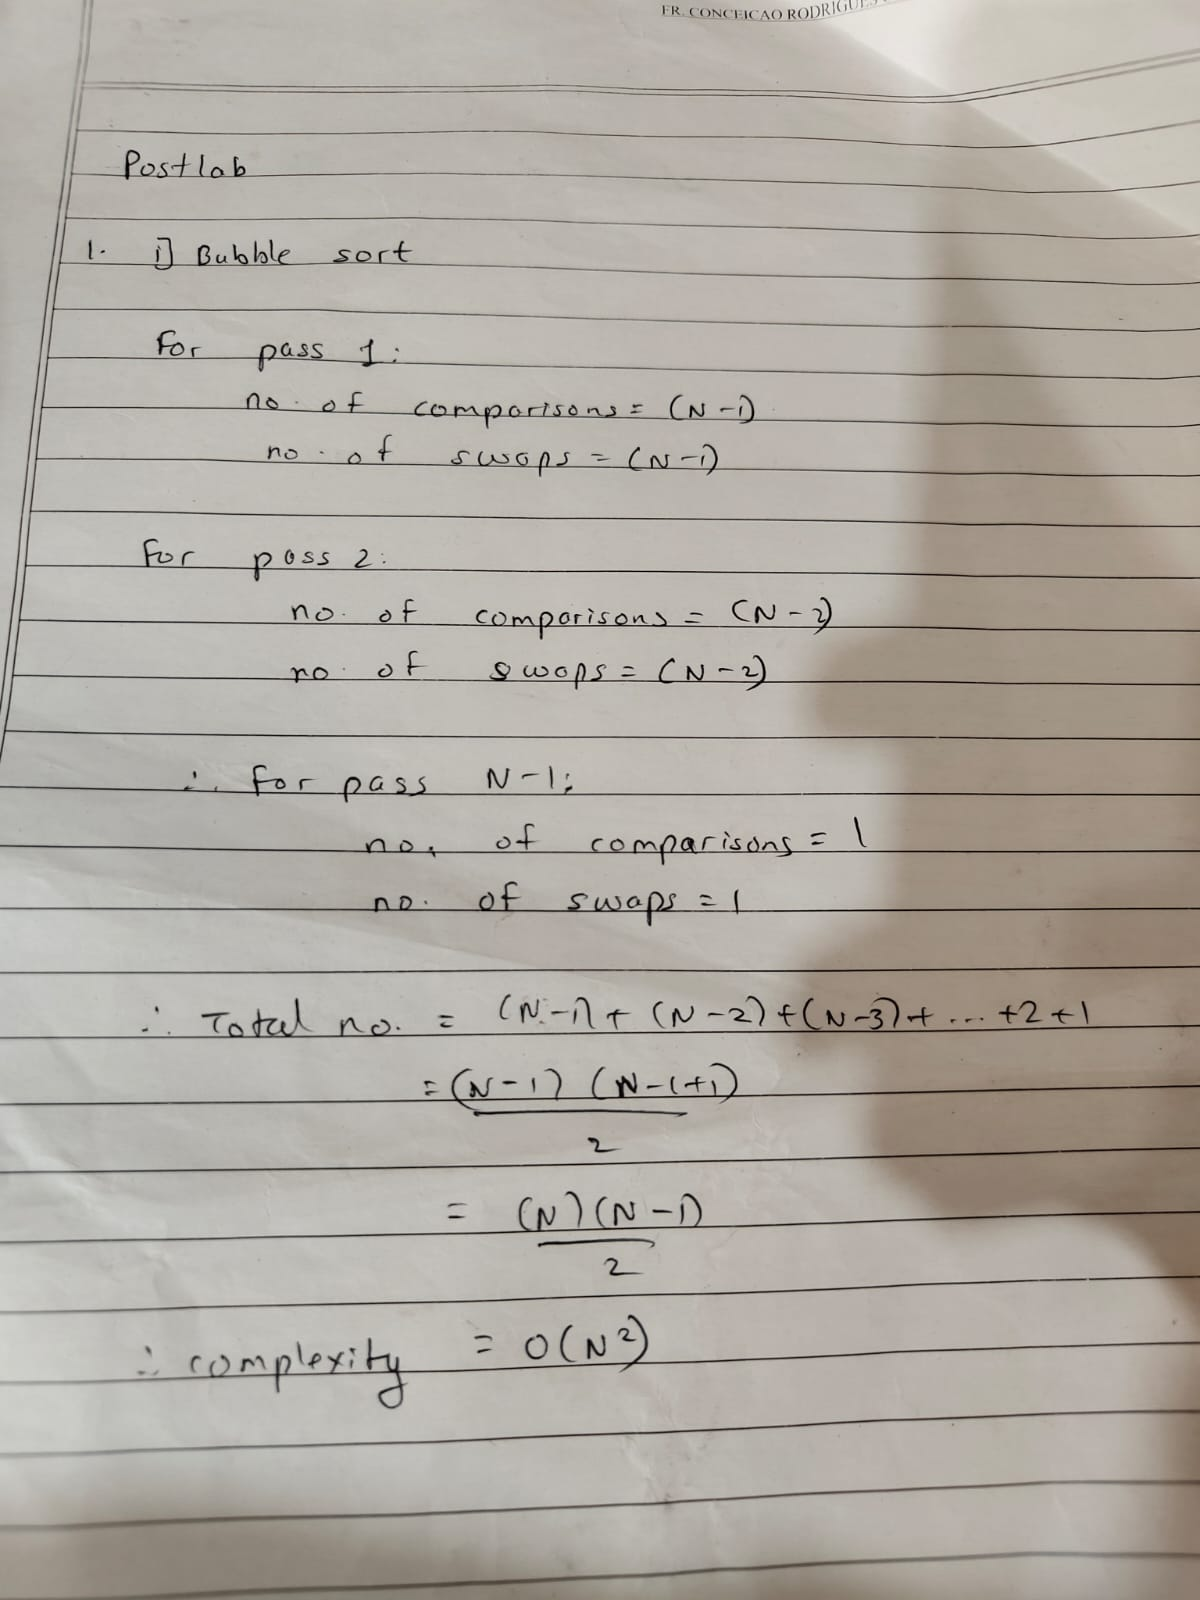 FR. CONCEICAO RODRIGUES
Postlab
1. i] Bubble sort
For pass 1:
no. of comparisons = (N-1)
no. of swaps = (N-1)
For pass 2:
no. of comparisons = (N-2)
no. of swaps = (N-2)
∴ For pass N-1:
no. of comparisons = 1
no. of swaps = 1
∴ Total no. = (N-1) + (N-2) + (N-3) + ... +2 +1
= (N-1) (N-1+1)
2
= (N) (N-1)
2
∴ complexity = O(N²)